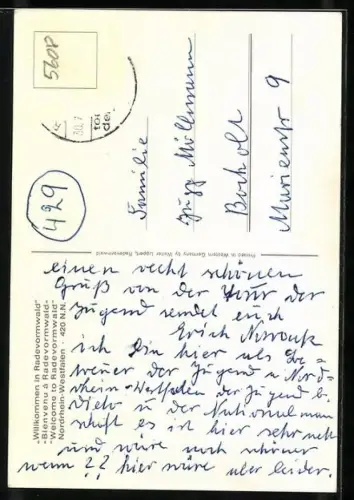 5608
30.7
429
Familie
Bocholt
Marienstr 9
Printed in Western Germany by
Radevormwald
„Willkommen in Radevormwald"
„Bienvenu à Radevormwald"
„Welcome to Radevormwald"
Nordrhein-Westfalen · 420 N.N.
einen recht schönen
Gruß von der Tour der
Jugend sendet euch
Erich
ich bin hier als Be=
treuer der Jugend u Nord=
rhein-Westfalen der Jugend b.
u der National man
schaft es ist hier sehr nett
und wäre noch schöner
wenn ?? hier wäre aber leider.